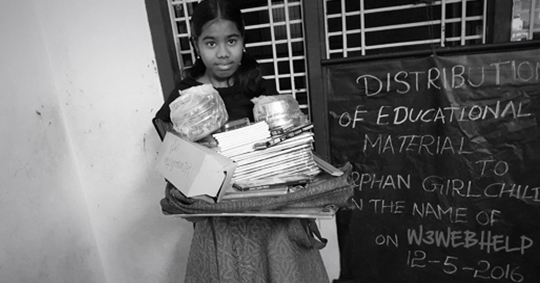 DISTRIBUTION
OF EDUCATIONAL
MATERIAL
TO
RPHAN GIRL CHILD
N THE NAME OF
ON W3WEBHELP
12-5-2016